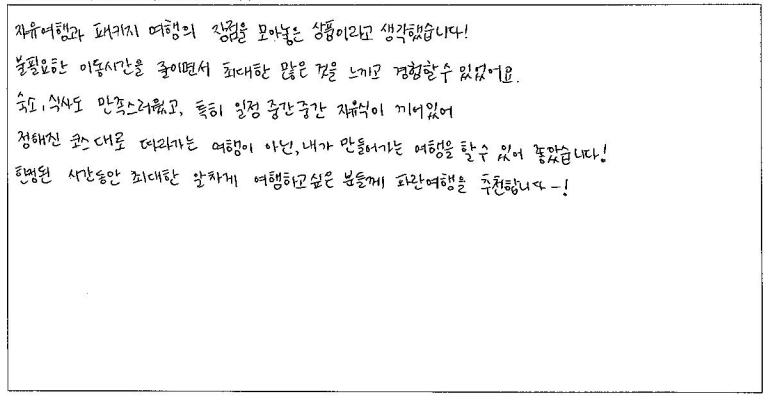 자유여행과 패키지 여행의 장점을 모아놓은 상품이라고 생각했습니다!
불필요한 이동시간을 줄이면서 최대한 많은 것을 느끼고 경험할 수 있었어요.
숙소, 식사도 만족스러웠고, 특히 일정 중간중간 자유식이 끼어있어
정해진 코스대로 따라가는 여행이 아닌, 내가 만들어가는 여행을 할 수 있어 좋았습니다!
한정된 시간동안 최대한 알차게 여행하고싶은 분들께 파란여행을 추천합니다-!